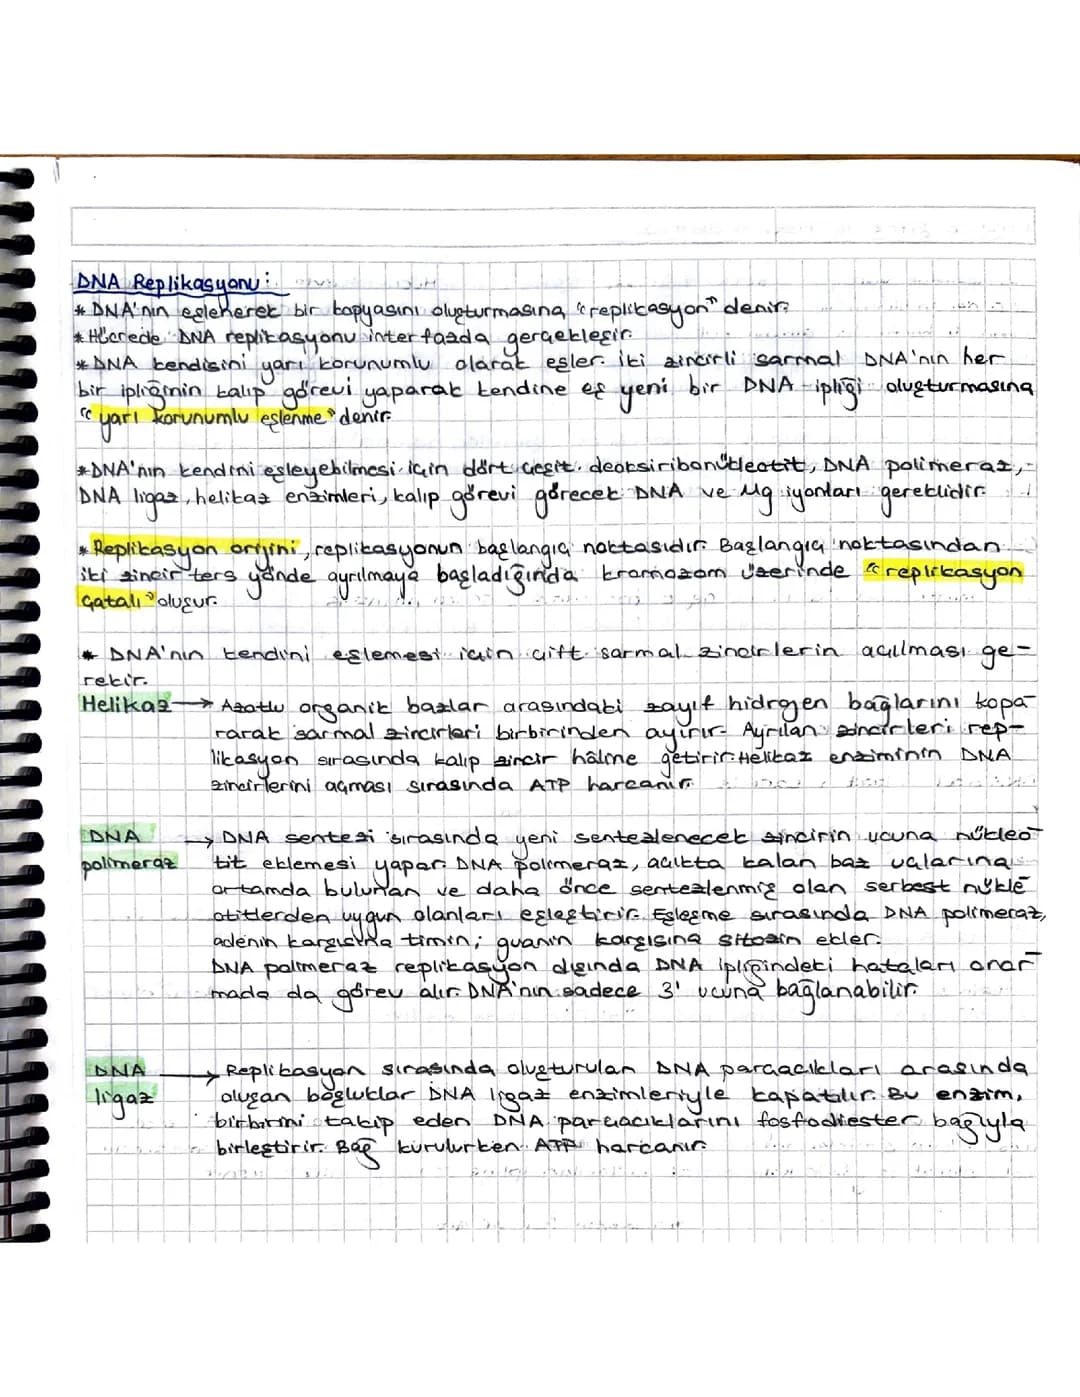 DNA Replikasyonu:
* DNA'nın eşlenerek bir kopyasını oluşturmasına "replikasyon" denir.
* Hücrede DNA replikasyonu interfazda gerçekleşir.
* DNA kendisini yarı korunumlu olarak eşler. İki zincirli sarmal DNA'nın her
bir ipliğinin kalıp görevi yaparak kendine eş yeni bir DNA ipliği oluşturmasına
"yarı korunumlu eşlenme" denir.
*DNA'nın kendini eşleyebilmesi için dört çeşit deoksiribonükleotit, DNA polimeraz,
DNA ligaz, helikaz enzimleri, kalıp görevi görecek DNA ve Mg iyonları gereklidir.
* Replikasyon orijini, replikasyonun başlangıç noktasıdır. Başlangıç noktasından
iki zincir ters yönde ayrılmaya başladığında kromozom üzerinde "replikasyon
çatalı" oluşur.
* DNA'nın kendini eşlemesi için çift sarmal zincirlerin açılması ge-
rekir.
Helikaz → Azotlu organik bazlar arasındaki zayıf hidrojen bağlarını kopa-
rarak sarmal zincirleri birbirinden ayırır. Ayrılan zincirleri rep-
likasyon sırasında kalıp zincir hâline getirir. Helikaz enziminin DNA
zincirlerini açması sırasında ATP harcanır.
DNA → DNA sentezi sırasında yeni sentezlenecek zincirin ucuna nükleo-
polimeraz tit eklemesi yapar. DNA polimeraz, açıkta kalan baz uçlarına
ortamda bulunan ve daha önce sentezlenmiş olan serbest nükle-
otitlerden uygun olanları eşleştirir. Eşleşme sırasında DNA polimeraz,
adenin karşısına timin; guanin karşısına sitozin ekler.
DNA polimeraz replikasyon dışında DNA ipliğindeki hataları onar-
mada da görev alır. DNA'nın sadece 3' ucuna bağlanabilir.
DNA → Replikasyon sırasında oluşturulan DNA parçacıkları arasında
ligaz oluşan boşluklar DNA ligaz enzimleriyle kapatılır. Bu enzim,
birbirini takip eden DNA parçacıklarını fosfodiester bağıyla
birleştirir. Bağ kurulurken ATP harcanır.